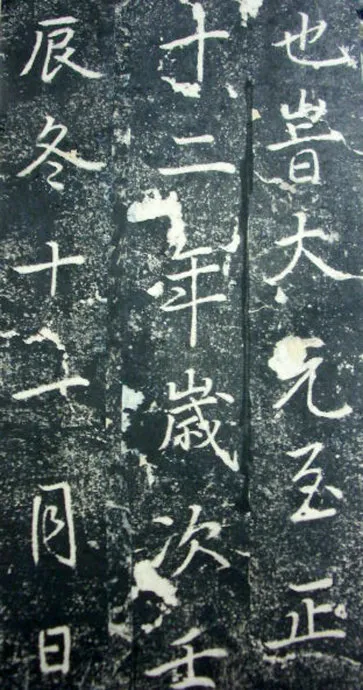 也旹大元至正
十二年歲次壬
辰冬十一月日